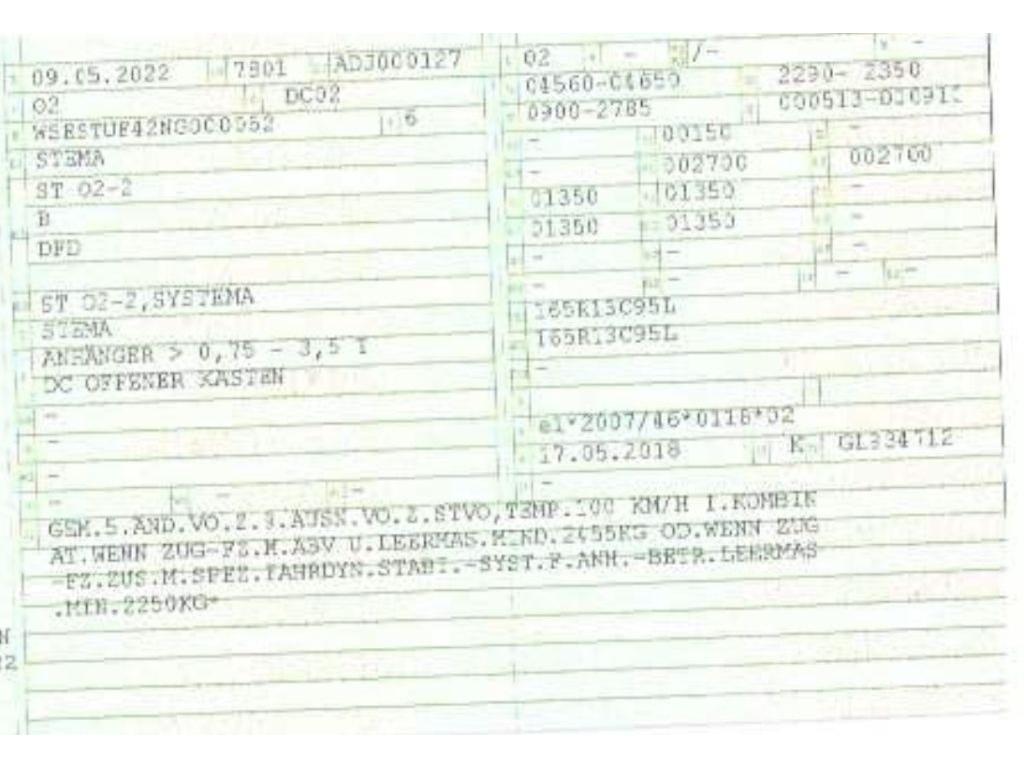 09.05.2022 7801 ADJ000127
02 DC02
6
STEMA
ST 02-2
B
DFD
ST 02-2,SYSTEMA
STEMA
ANHÄNGER > 0,75 - 3,5 T
DC OFFENER KASTEN
-
-
-
- - -
02 - /- -
04560-04650 2290- 2350
0900-2785
- 00150 -
- 002700 002700
01350 01350 -
01350 01350 -
- - -
- - -
165R13C95L
165R13C95L
-
e1*2007/46*0118*02
17.05.2018 K GL334712
-
GEM.5.ÄND.VO.Z.9.AUSN.VO.Z.STVO,TEMP.100 KM/H I.KOMBIN
AT.WENN ZUG-FZ.M.ABV U.LEERMAS.MIND.2455KG OD.WENN ZUG
-FZ.ZUS.M.SPEZ.FAHRDYN.STABI.-SYST.F.ANH.-BETR.LEERMAS
.MIN.2250KG*
N
22